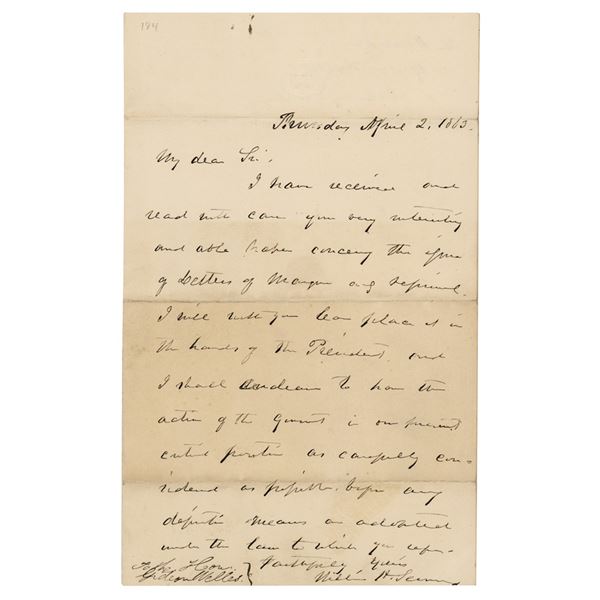 184
Thursday April 2, 1863.
My dear Sir,
I have received and
read with care your very interesting
and able paper concerning the issue
of Letters of Marque and reprisal.
I will with your leave place it in
the hands of the President and
I shall endeavor to have the
action of the Government in our present
critical position as carefully con-
sidered as possible before any
definite means are adopted
under the law to which you refer.
Faithfully Yours
William H. Seward
To the Hon.
Gideon Welles.